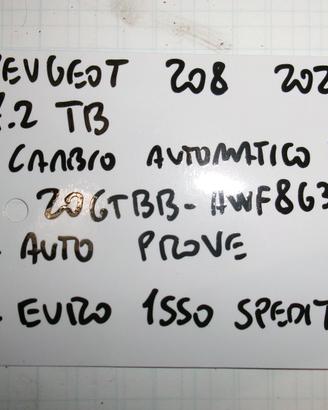 EUGEOT 208 202
1.2 TB
CAMBIO AUTOMATICO
20GTBB - AWF8G3
AUTO PROVE
EURO 1550 SPEDIT